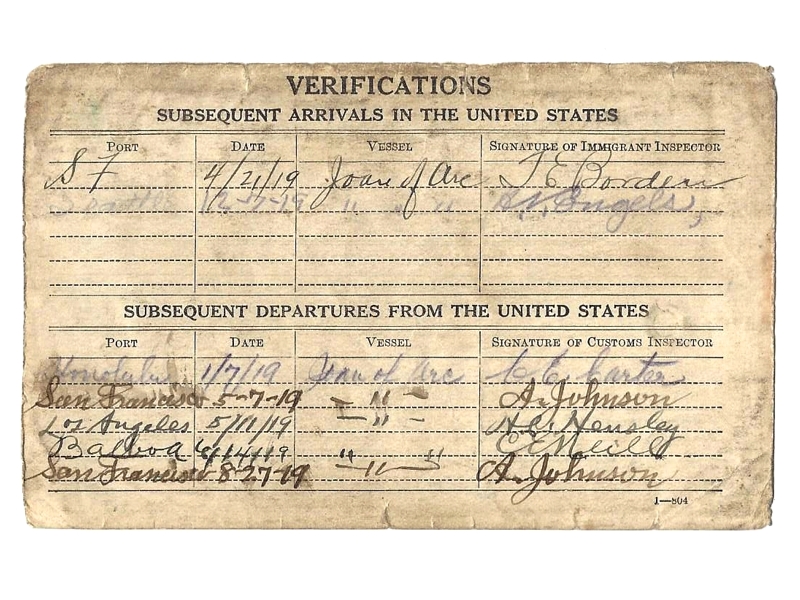 VERIFICATIONS
SUBSEQUENT ARRIVALS IN THE UNITED STATES
PORT DATE VESSEL SIGNATURE OF IMMIGRANT INSPECTOR
S F 4/21/19 Joan of Arc T E Borden
Seattle 12-7-19 " " " Engels
SUBSEQUENT DEPARTURES FROM THE UNITED STATES
PORT DATE VESSEL SIGNATURE OF CUSTOMS INSPECTOR
Honolulu 1/7/19 Joan of Arc C E Carter
San Francisco 5-7-19 – " – A. Johnson
Los Angeles 5/11/19 – " – Hensley
Balboa 6/14/19 " " C E Neill
San Francisco 8-27-19 – " – A. Johnson
1—804